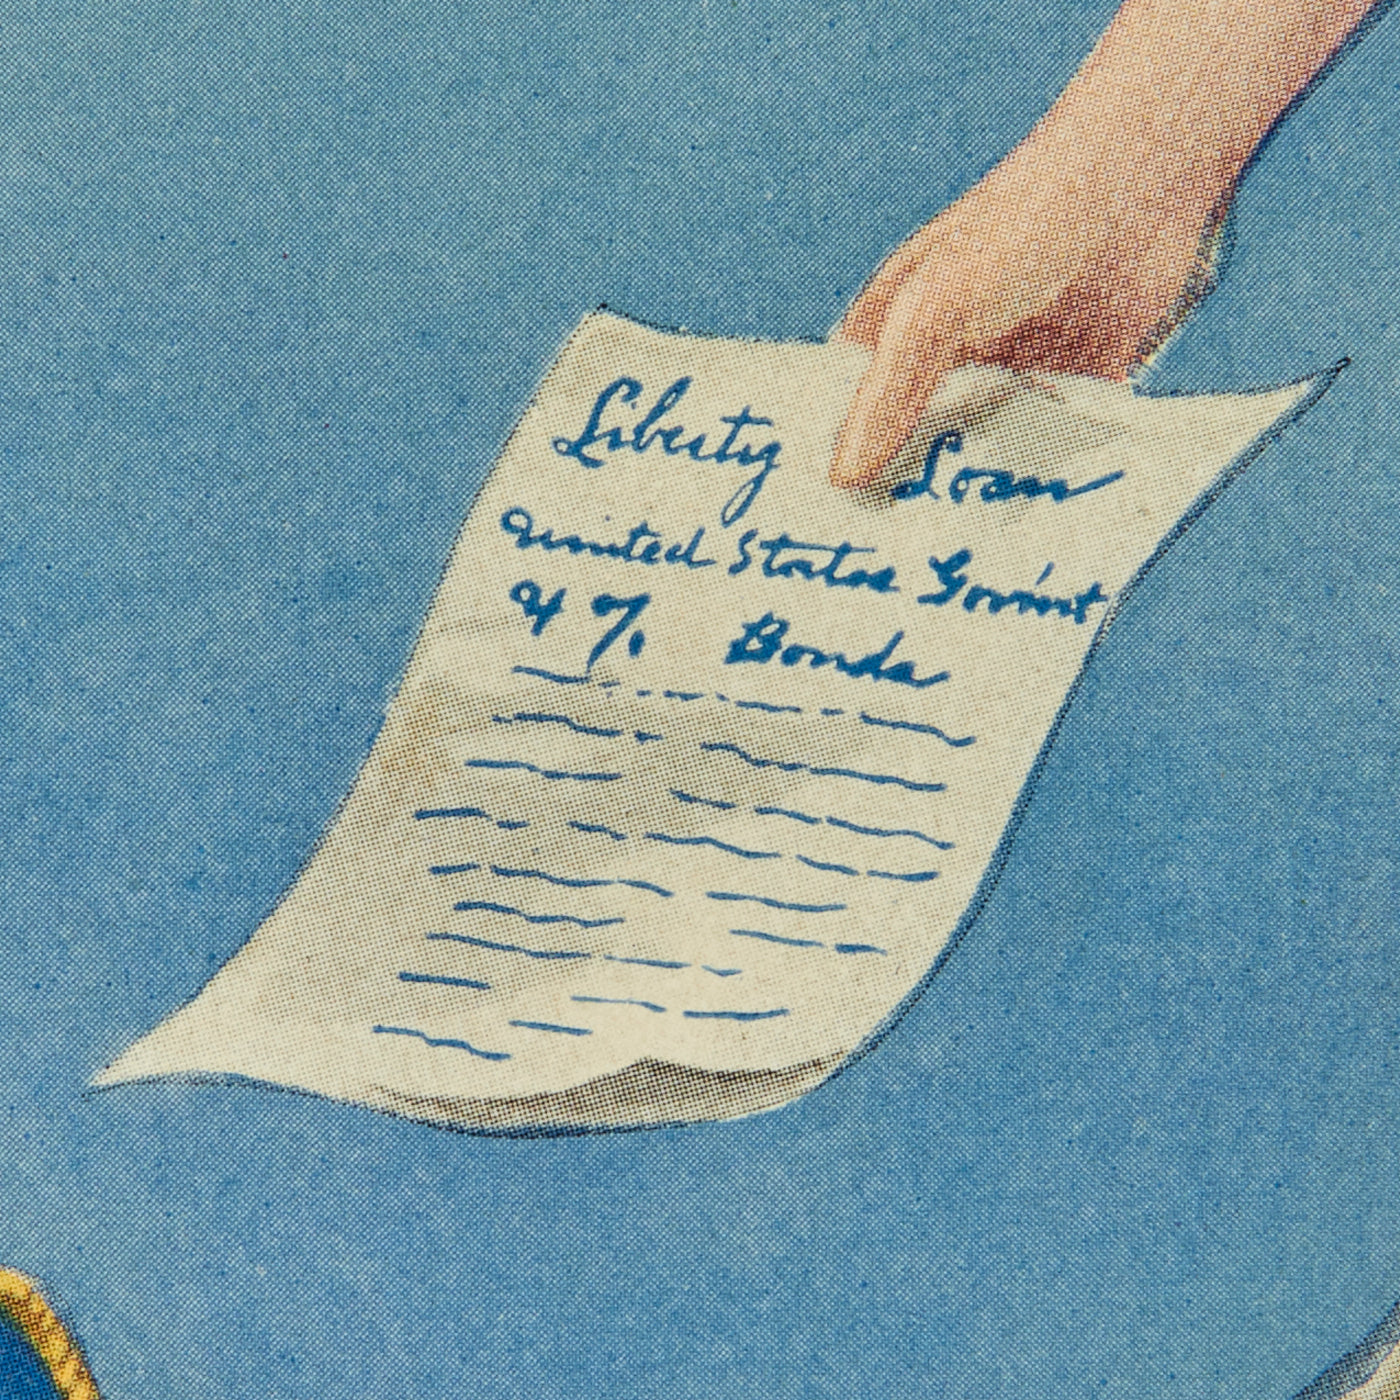 Liberty Loan
United States Gov'm't
4 % Bonds